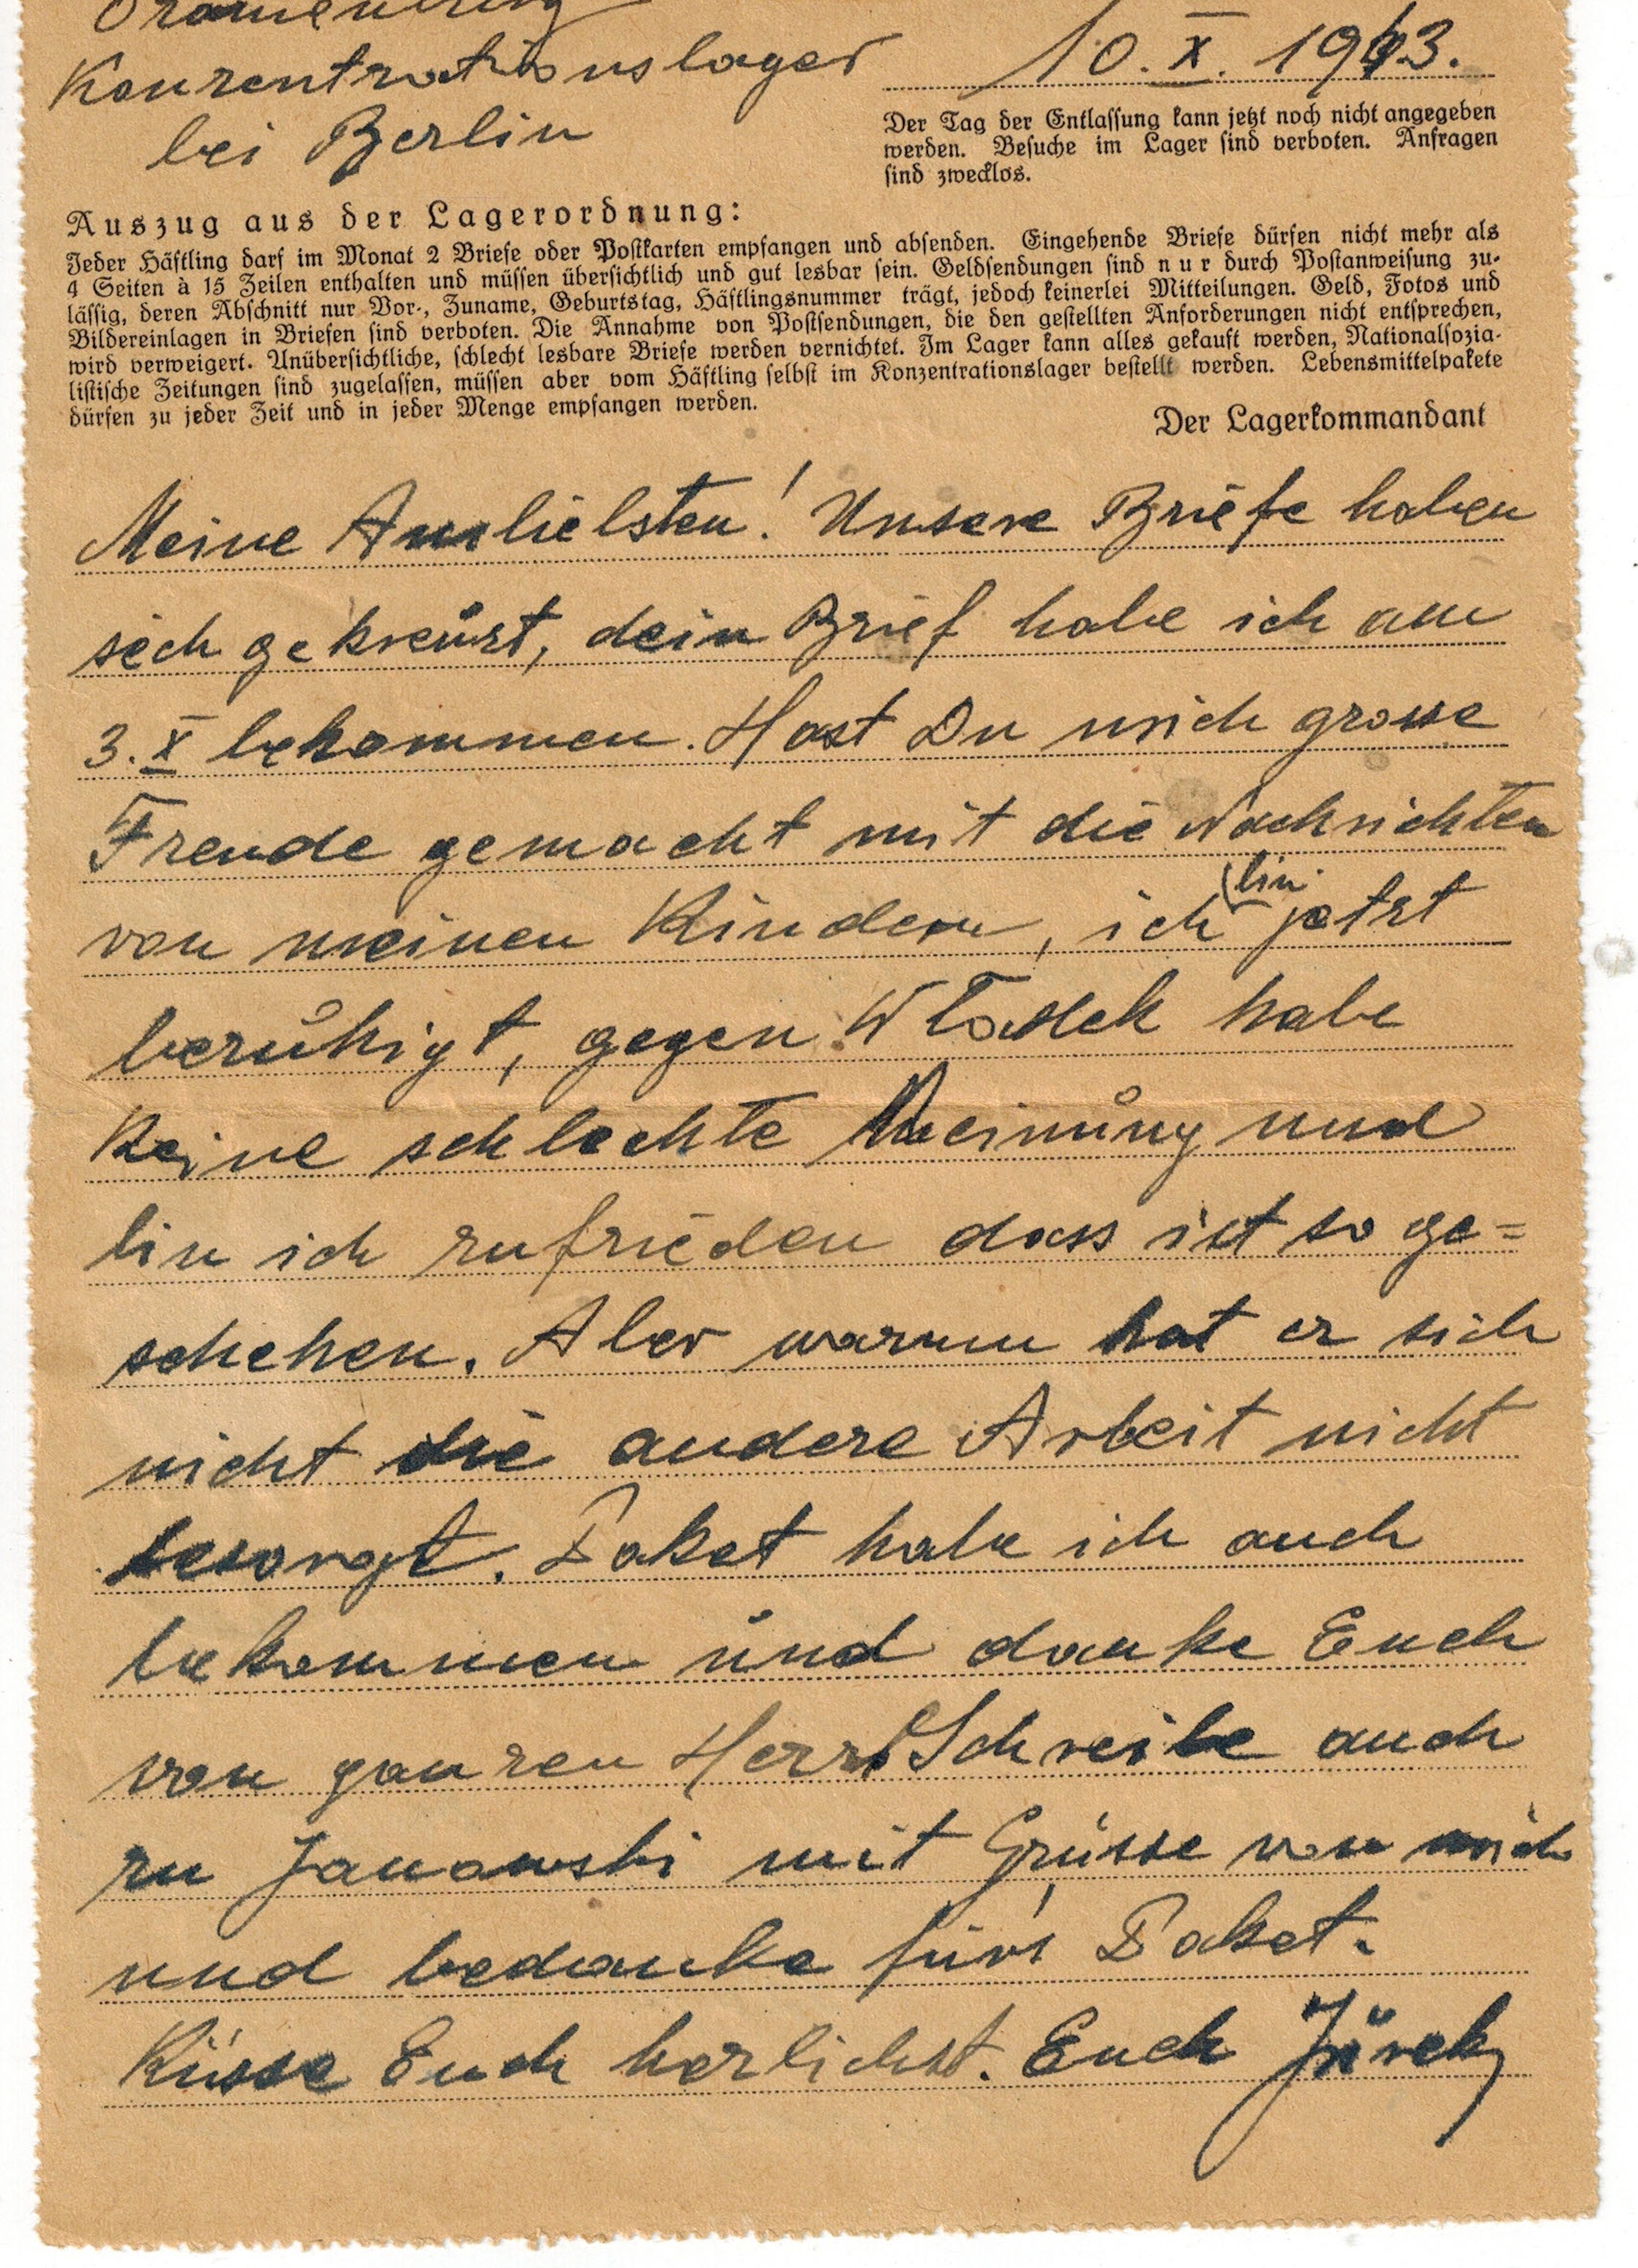 Oranienburg
Konzentrationslager
bei Berlin
10. X. 1943.
Der Tag der Entlassung kann jetzt noch nicht angegeben
werden. Besuche im Lager sind verboten. Anfragen
sind zwecklos.
Auszug aus der Lagerordnung:
Jeder Häftling darf im Monat 2 Briefe oder Postkarten empfangen und absenden. Eingehende Briefe dürfen nicht mehr als
4 Seiten à 15 Zeilen enthalten und müssen übersichtlich und gut lesbar sein. Geldsendungen sind nur durch Postanweisung zu-
lässig, deren Abschnitt nur Vor-, Zuname, Geburtstag, Häftlingsnummer trägt, jedoch keinerlei Mitteilungen. Geld, Fotos und
Bildereinlagen in Briefen sind verboten. Die Annahme von Postsendungen, die den gestellten Anforderungen nicht entsprechen,
wird verweigert. Unübersichtliche, schlecht lesbare Briefe werden vernichtet. Im Lager kann alles gekauft werden, Nationalsozia-
listische Zeitungen sind zugelassen, müssen aber vom Häftling selbst im Konzentrationslager bestellt werden. Lebensmittelpakete
dürfen zu jeder Zeit und in jeder Menge empfangen werden.
Der Lagerkommandant
Meine! Unsere Briefe haben
sich gekreuzt, dein Brief habe ich am
3. X bekommen. Hast Du mich grosse
Freude gemacht mit die Nachrichten
von meinen Kindern, ich bin jetzt
berühigt, gegen Wladek habe
Keine schlechte Meinung und
bin ich zufrieden dass ist so ge=
schehen. Aber warum hat er sich
nicht die andere Arbeit nicht
besorgt. Paket habe ich auch
bekommen und danke Euch
von ganzen Herz. Schreibe auch
zu Janowski mit Grüsse von mich
und bedanke für's Paket.
Küsse Euch herlichst. Euch Jurek